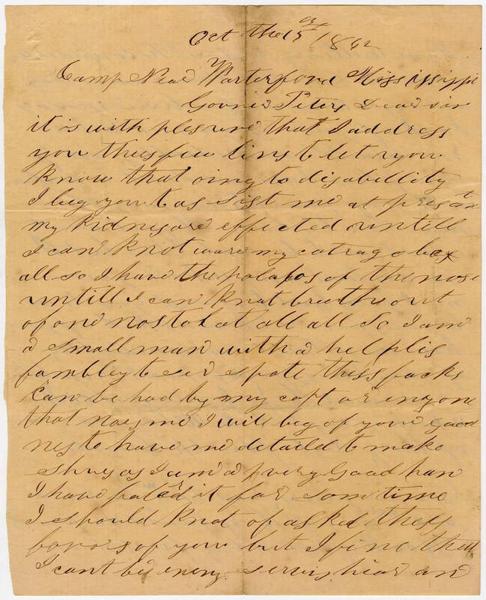 Oct the 15 / 1862
Camp Near Warterford Mississippi
Govner Peters Dear sir
it is with plesure that I address
you thes few lins to let you
know that oing to disabellity
I beg you to assist me at presant
my kidneys are effected untill
I can knot ware my catrag box
all so I have the polapos of the nose
untill I can knot breath out
of one nostol at all all So I am
a small man with a helplis
fambley to seport thes facks
can be had by my capt or enyone
that noes me I will beg of your good
nes to have me detaild to make
shues as I am a very good han
I have foled it for som time
I should knot of asked thes
favors of you but I fine that
I cant be eney servis hear and